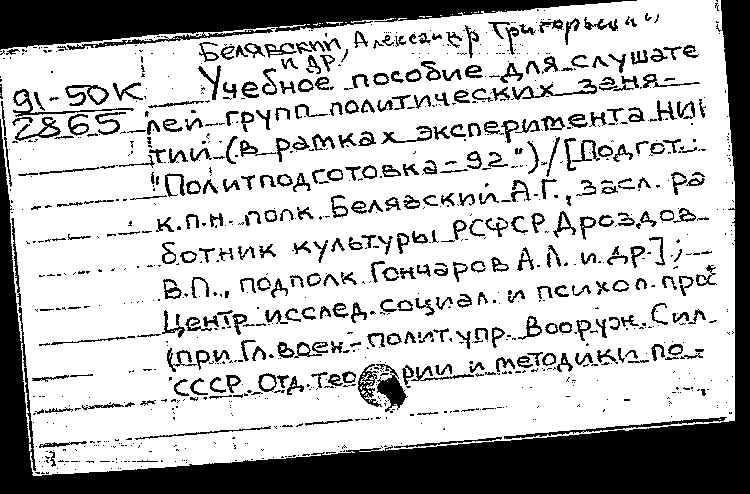 Белявский, Александр Григорьевич
и др.
91-50К Учебное пособие для слушате
2865 лей групп политических заня-
тий (в рамках эксперимента НИ
"Политподготовка-92") / [Подгот.:
к.п.н. полк. Белявский А.Г., засл. ра
ботник культуры РСФСР Дроздов
В.П., подполк. Гончаров А.Л. и др.];
Центр исслед. социал. и психол. проб
(при Гл. воен.-полит. упр. Вооруж. Сил
СССР. Отд. теории и методики по-